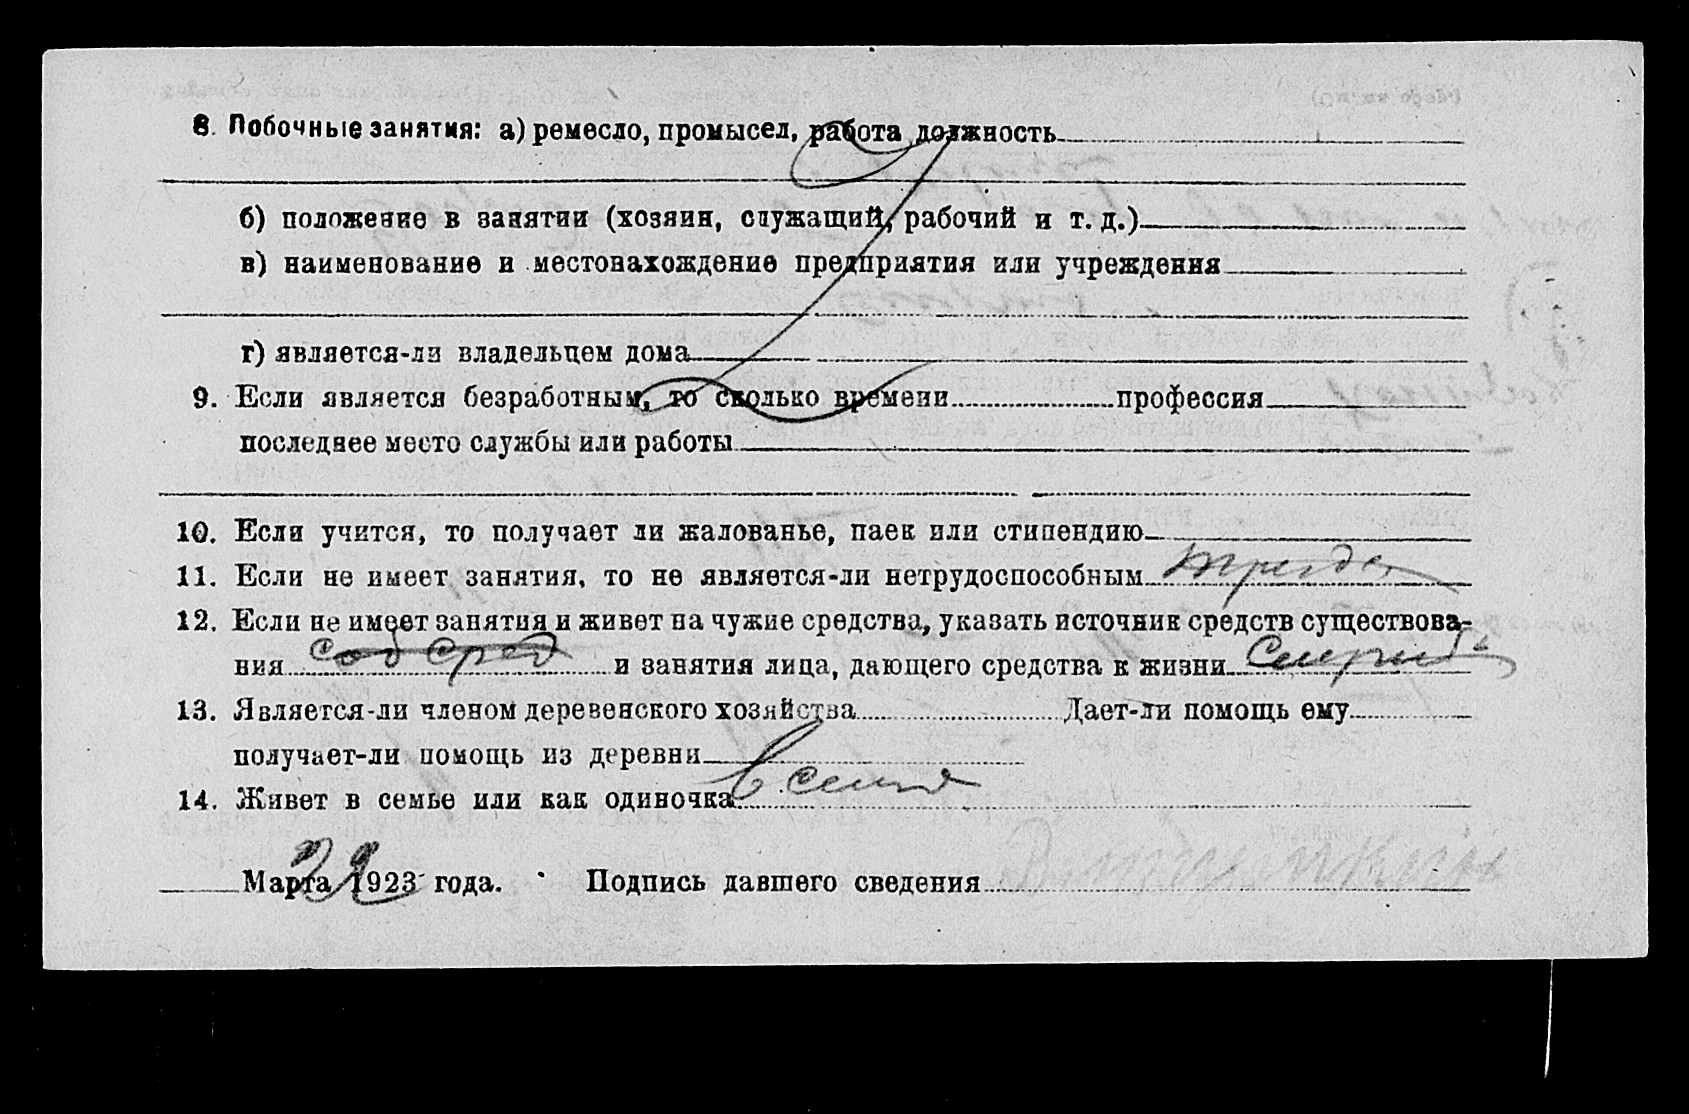 8. Побочные занятия: а) ремесло, промысел, работа должность
б) положение в занятии (хозяин, служащий, рабочий и т. д.)
в) наименование и местонахождение предприятия или учреждения
г) является-ли владельцем дома
9. Если является безработным, то сколько времени профессия
последнее место службы или работы
10. Если учится, то получает ли жалованье, паек или стипендию
11. Если не имеет занятия, то не является-ли нетрудоспособным
12. Если не имеет занятия и живет на чужие средства, указать источник средств существова-
ния и занятия лица, дающего средства к жизни
13. Является-ли членом деревенского хозяйства Дает-ли помощь ему
получает-ли помощь из деревни
14. Живет в семье или как одиночка в семье
22 Марта 1923 года. Подпись давшего сведения